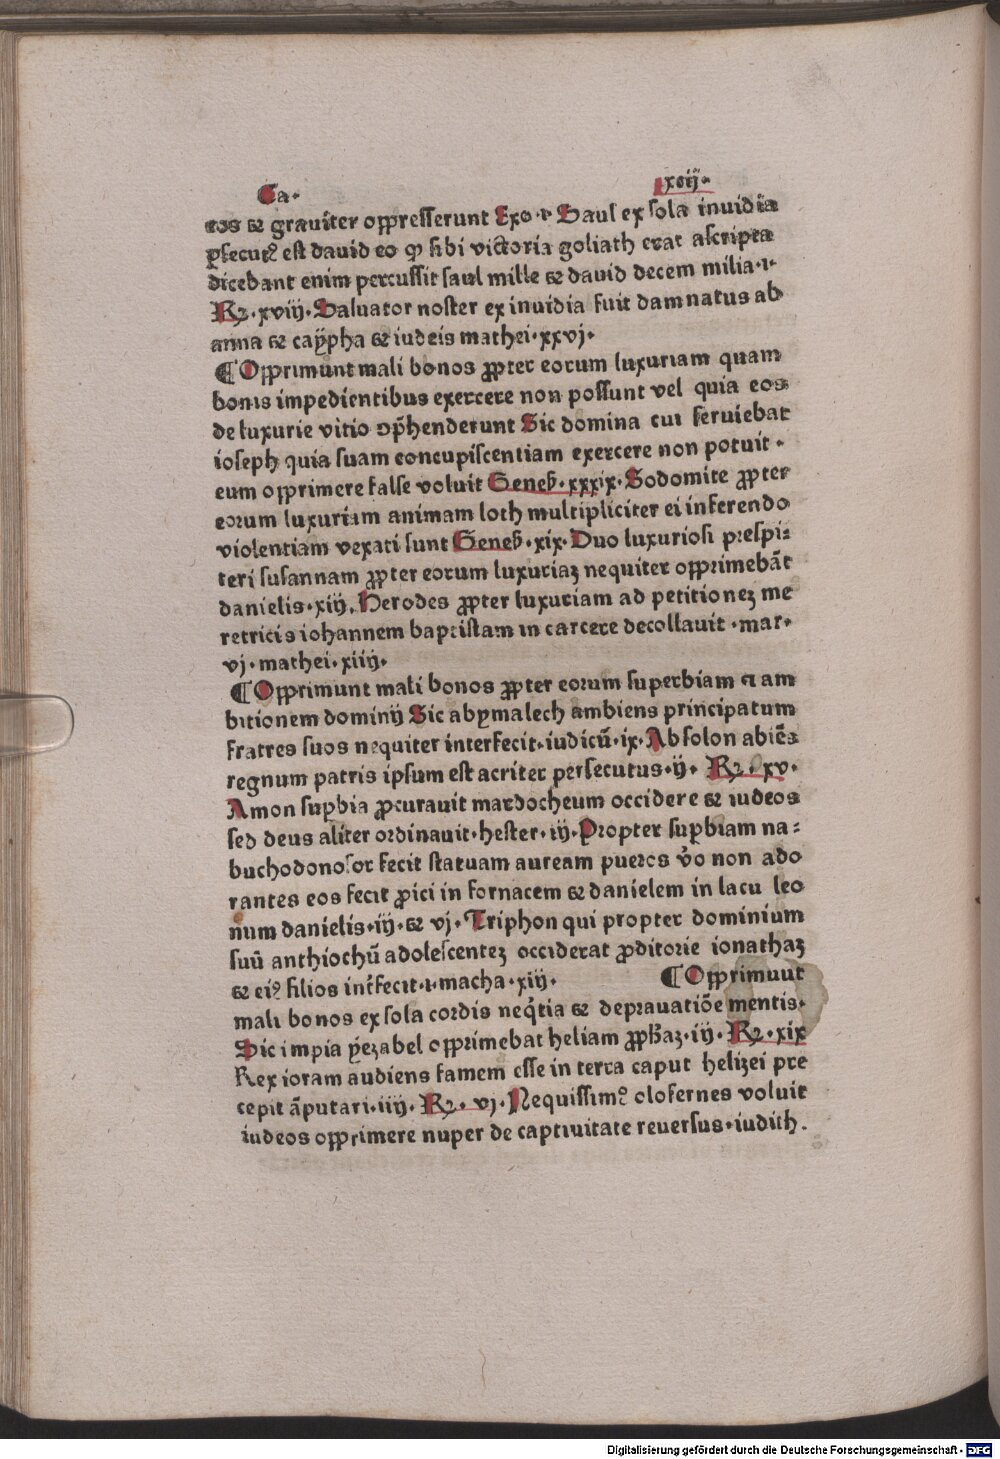 Ca· lxcij·
eos ⁊ grauiter oppresserunt Exo·v· Saul ex sola inuidia
ꝑsecutꝰ est dauid eo ꝙ sibi victoria goliath erat ascripta
dicebant enim percussit saul mille ⁊ dauid decem milia·i·
Rꝫ·xviij·Saluator noster ex inuidia fuit damnatus ab
anna ⁊ caypha ⁊ iudeis mathei·xxvj·
¶Opprimunt mali bonos ꝓpter eorum luxuriam quam
bonis impedientibus exercere non possunt vel quia eos
de luxurie vitio ꝯp̄henderunt Sic domina cui seruiebat
ioseph quia suam concupiscentiam exercere non potuit·
eum opprimere false voluit Geneß·xxxix·Sodomite ꝓpter
eorum luxuriam animam loth multipliciter ei inferendo
violentiam vexati sunt Geneß·xix·Duo luxuriosi prespi⸗
teri susannam ꝓpter eorum luxuriaꝫ nequiter opprimebāt
danielis·xiij·Herodes ꝓpter luxuriam ad petitioneꝫ me
retricis iohannem baptistam in carcere decollauit·mar·
vj·mathei·xiiij·
¶Opprimunt mali bonos ꝓpter eorum superbiam ⁊ am
bitionem dominij Sic abymalech ambiens principatum
fratres suos nequiter interfecit·iudicū·ix·Absolon abiēs
regnum patris ipsum est acriter persecutus·ij· Rꝫ·xv·
Amon suꝑbia ꝓcurauit mardocheum occidere ⁊ iudeos
sed deus aliter ordinauit·hester·iij·Propter suꝑbiam na⸗
buchodonosor fecit statuam auream pueros v̊o non ado
rantes eos fecit ꝓici in fornacem ⁊ danielem in lacu leo
num danielis·iij·⁊ vj·Triphon qui propter dominium
suū anthiochū adolescenteꝫ occiderat ꝓditorie ionathaꝫ
⁊ eiꝰ filios int̄fecit·i·macha·xiij· ¶Opprimuut
mali bonos ex sola cordis neq̇tia ⁊ deprauatiōe mentis·
Sic impia yezabel opprimebat heliam ꝓpßaꝫ·iij·Rꝫ·xix
Rex ioram audiens famem esse in terra caput helizei pre
cepit āputari·iiij·Rꝫ·vj·Nequissimꝰ olofernes voluit
iudeos opprimere nuper de captiuitate reuersus·iudith.
Digitalisierung gefördert durch die Deutsche Forschungsgemeinschaft · DFG